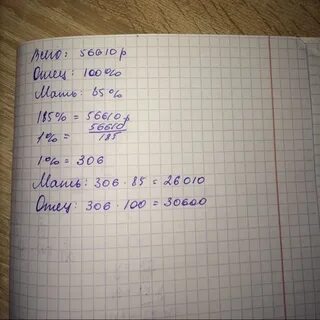 Всего: 56610 р
Отец: 100%
Мать: 85%
185% = 56610 р
1% = 56610/185
1% = 306
Мать: 306 · 85 = 26010
Отец: 306 · 100 = 30600